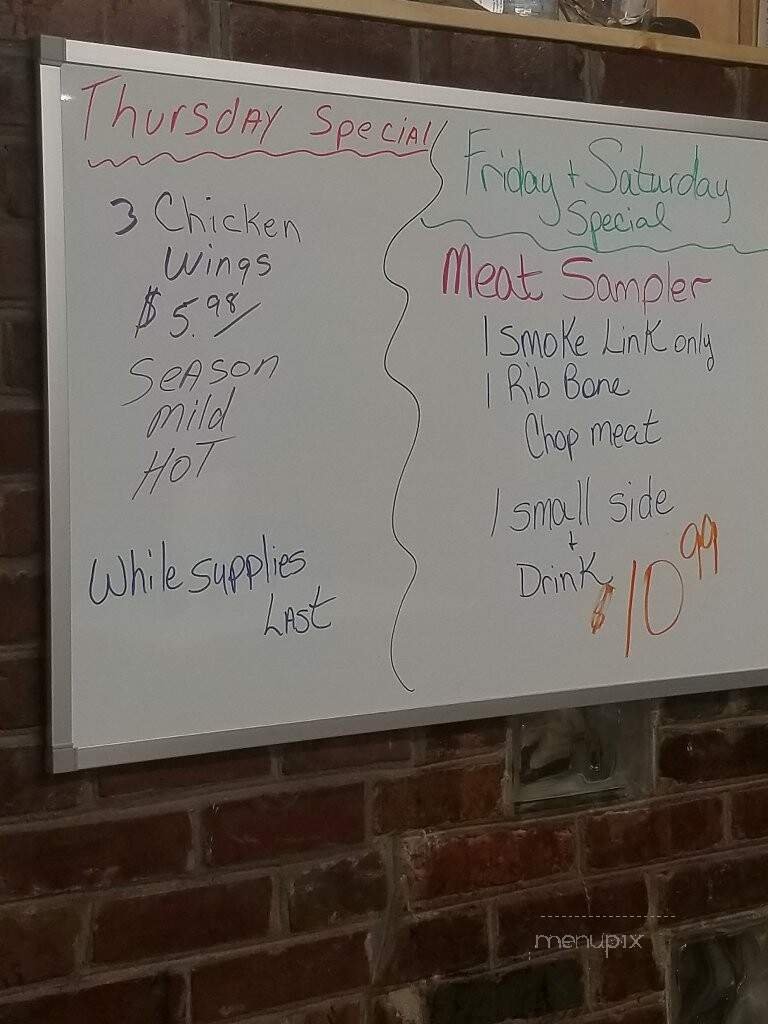 Thursday Special
3 Chicken
Wings
$5.98/
Season
mild
HOT
While supplies
Last
Friday + Saturday
Special
Meat Sampler
1 Smoke Link only
1 Rib Bone
Chop meat
1 small side
+
Drink
$10.99
menupix